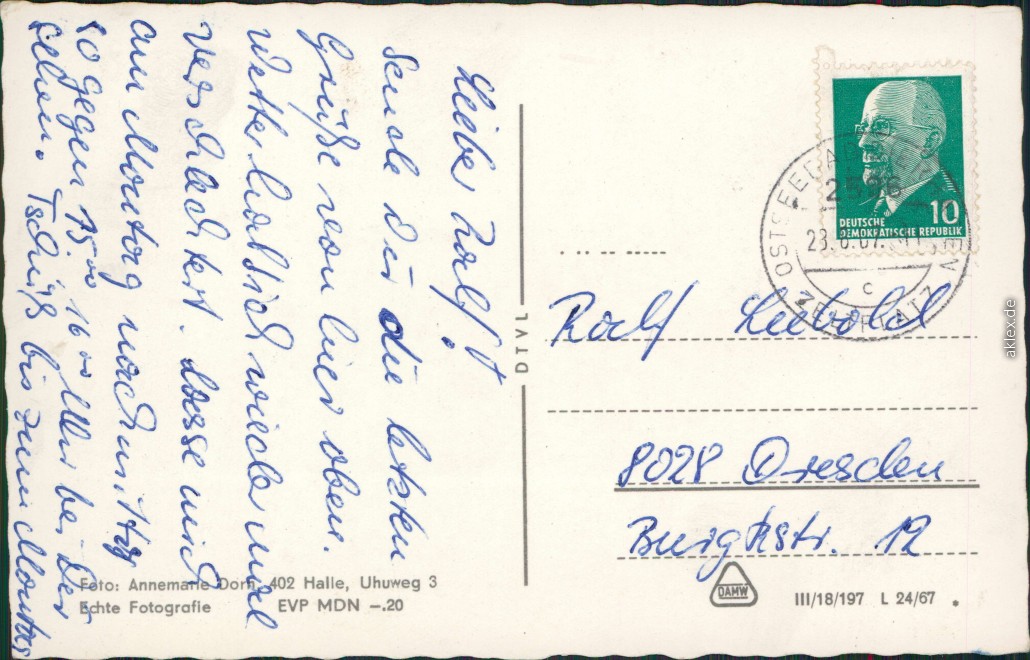 Lieber Ralf!
Sende dir die letzten
Grüße von hier oben.
Wetter hat sich wieder mal
verschlechtert. Lasse mich
am Montag nachmittag
so gegen 15°° 16°° Uhr bei Dir
sehen. Tschüß bis zum Montag
DTVL
OSTSEEBAD
2556
23.8.67
c
ZELTPLATZ
10
DEUTSCHE
DEMOKRATISCHE REPUBLIK
Ralf Liebold
8028 Dresden
Burgkstr. 12
Foto: Annemarie Dorn, 402 Halle, Uhuweg 3
Echte Fotografie EVP MDN –.20
DAMW
III/18/197 L 24/67
aklex.de